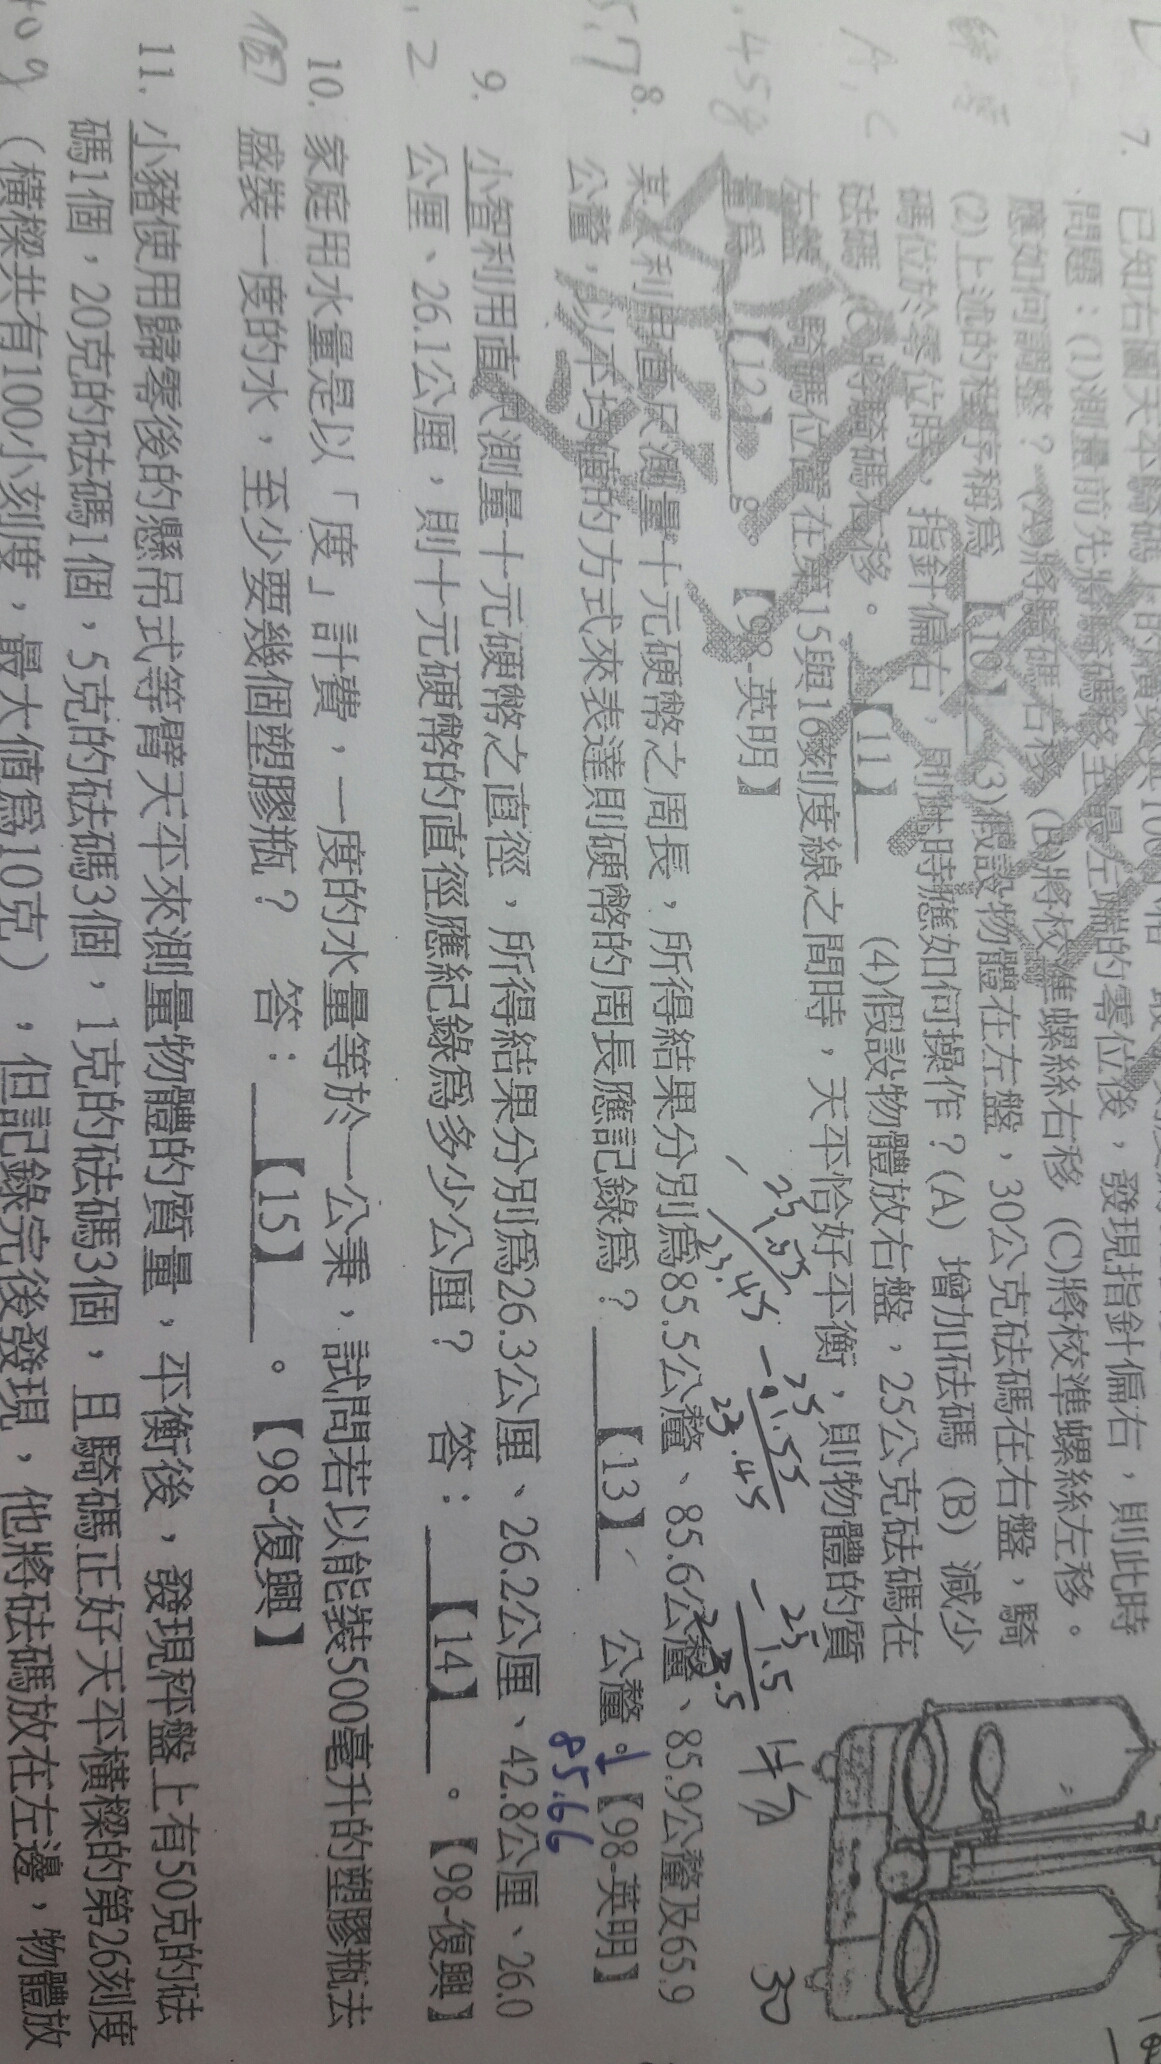 7. 已知右圖天平騎碼
問題：(1)測量前先將騎碼移至最左端的零位後，發現指針偏右，則此時
應如何調整？(A)將騎碼右移 (B)將校準螺絲右移 (C)將校準螺絲左移。
(2)上述的程序稱為【10】(3)假設物體在左盤，30公克砝碼在右盤，騎
碼位於零位時，指針偏右，則此時應如何操作？(A) 增加砝碼 (B) 減少
砝碼 (C)將騎碼右移。【11】(4)假設物體放右盤，25公克砝碼在
左盤，騎碼位置在第15與16刻度線之間時，天平恰好平衡，則物體的質
量為【12】g。【98-英明】
8. 某人利用直尺測量十元硬幣之周長，所得結果分別為85.5公釐、85.6公釐、85.9公釐及65.9
公釐，以平均值的方式來表達則硬幣的周長應記錄為？【13】公釐。【98-英明】
9. 小智利用直尺測量十元硬幣之直徑，所得結果分別為26.3公厘、26.2公厘、42.8公厘、26.0
公厘、26.1公厘，則十元硬幣的直徑應紀錄為多少公厘？ 答：【14】。【98-復興】
10. 家庭用水量是以「度」計費，一度的水量等於一公秉，試問若以能裝500毫升的塑膠瓶去
盛裝一度的水，至少要幾個塑膠瓶？ 答：【15】。【98-復興】
11. 小豬使用歸零後的懸吊式等臂天平來測量物體的質量，平衡後，發現秤盤上有50克的砝
碼1個，20克的砝碼1個，5克的砝碼3個，1克的砝碼3個，且騎碼正好天平橫樑的第26刻度
（橫樑共有100小刻度，最大值為10克），但記錄完後發現，他將砝碼放在左邊，物體放
A, C
.45g
5.7
.2
個
25
1.55
23.45
25
1.5
23.5
30
85.66